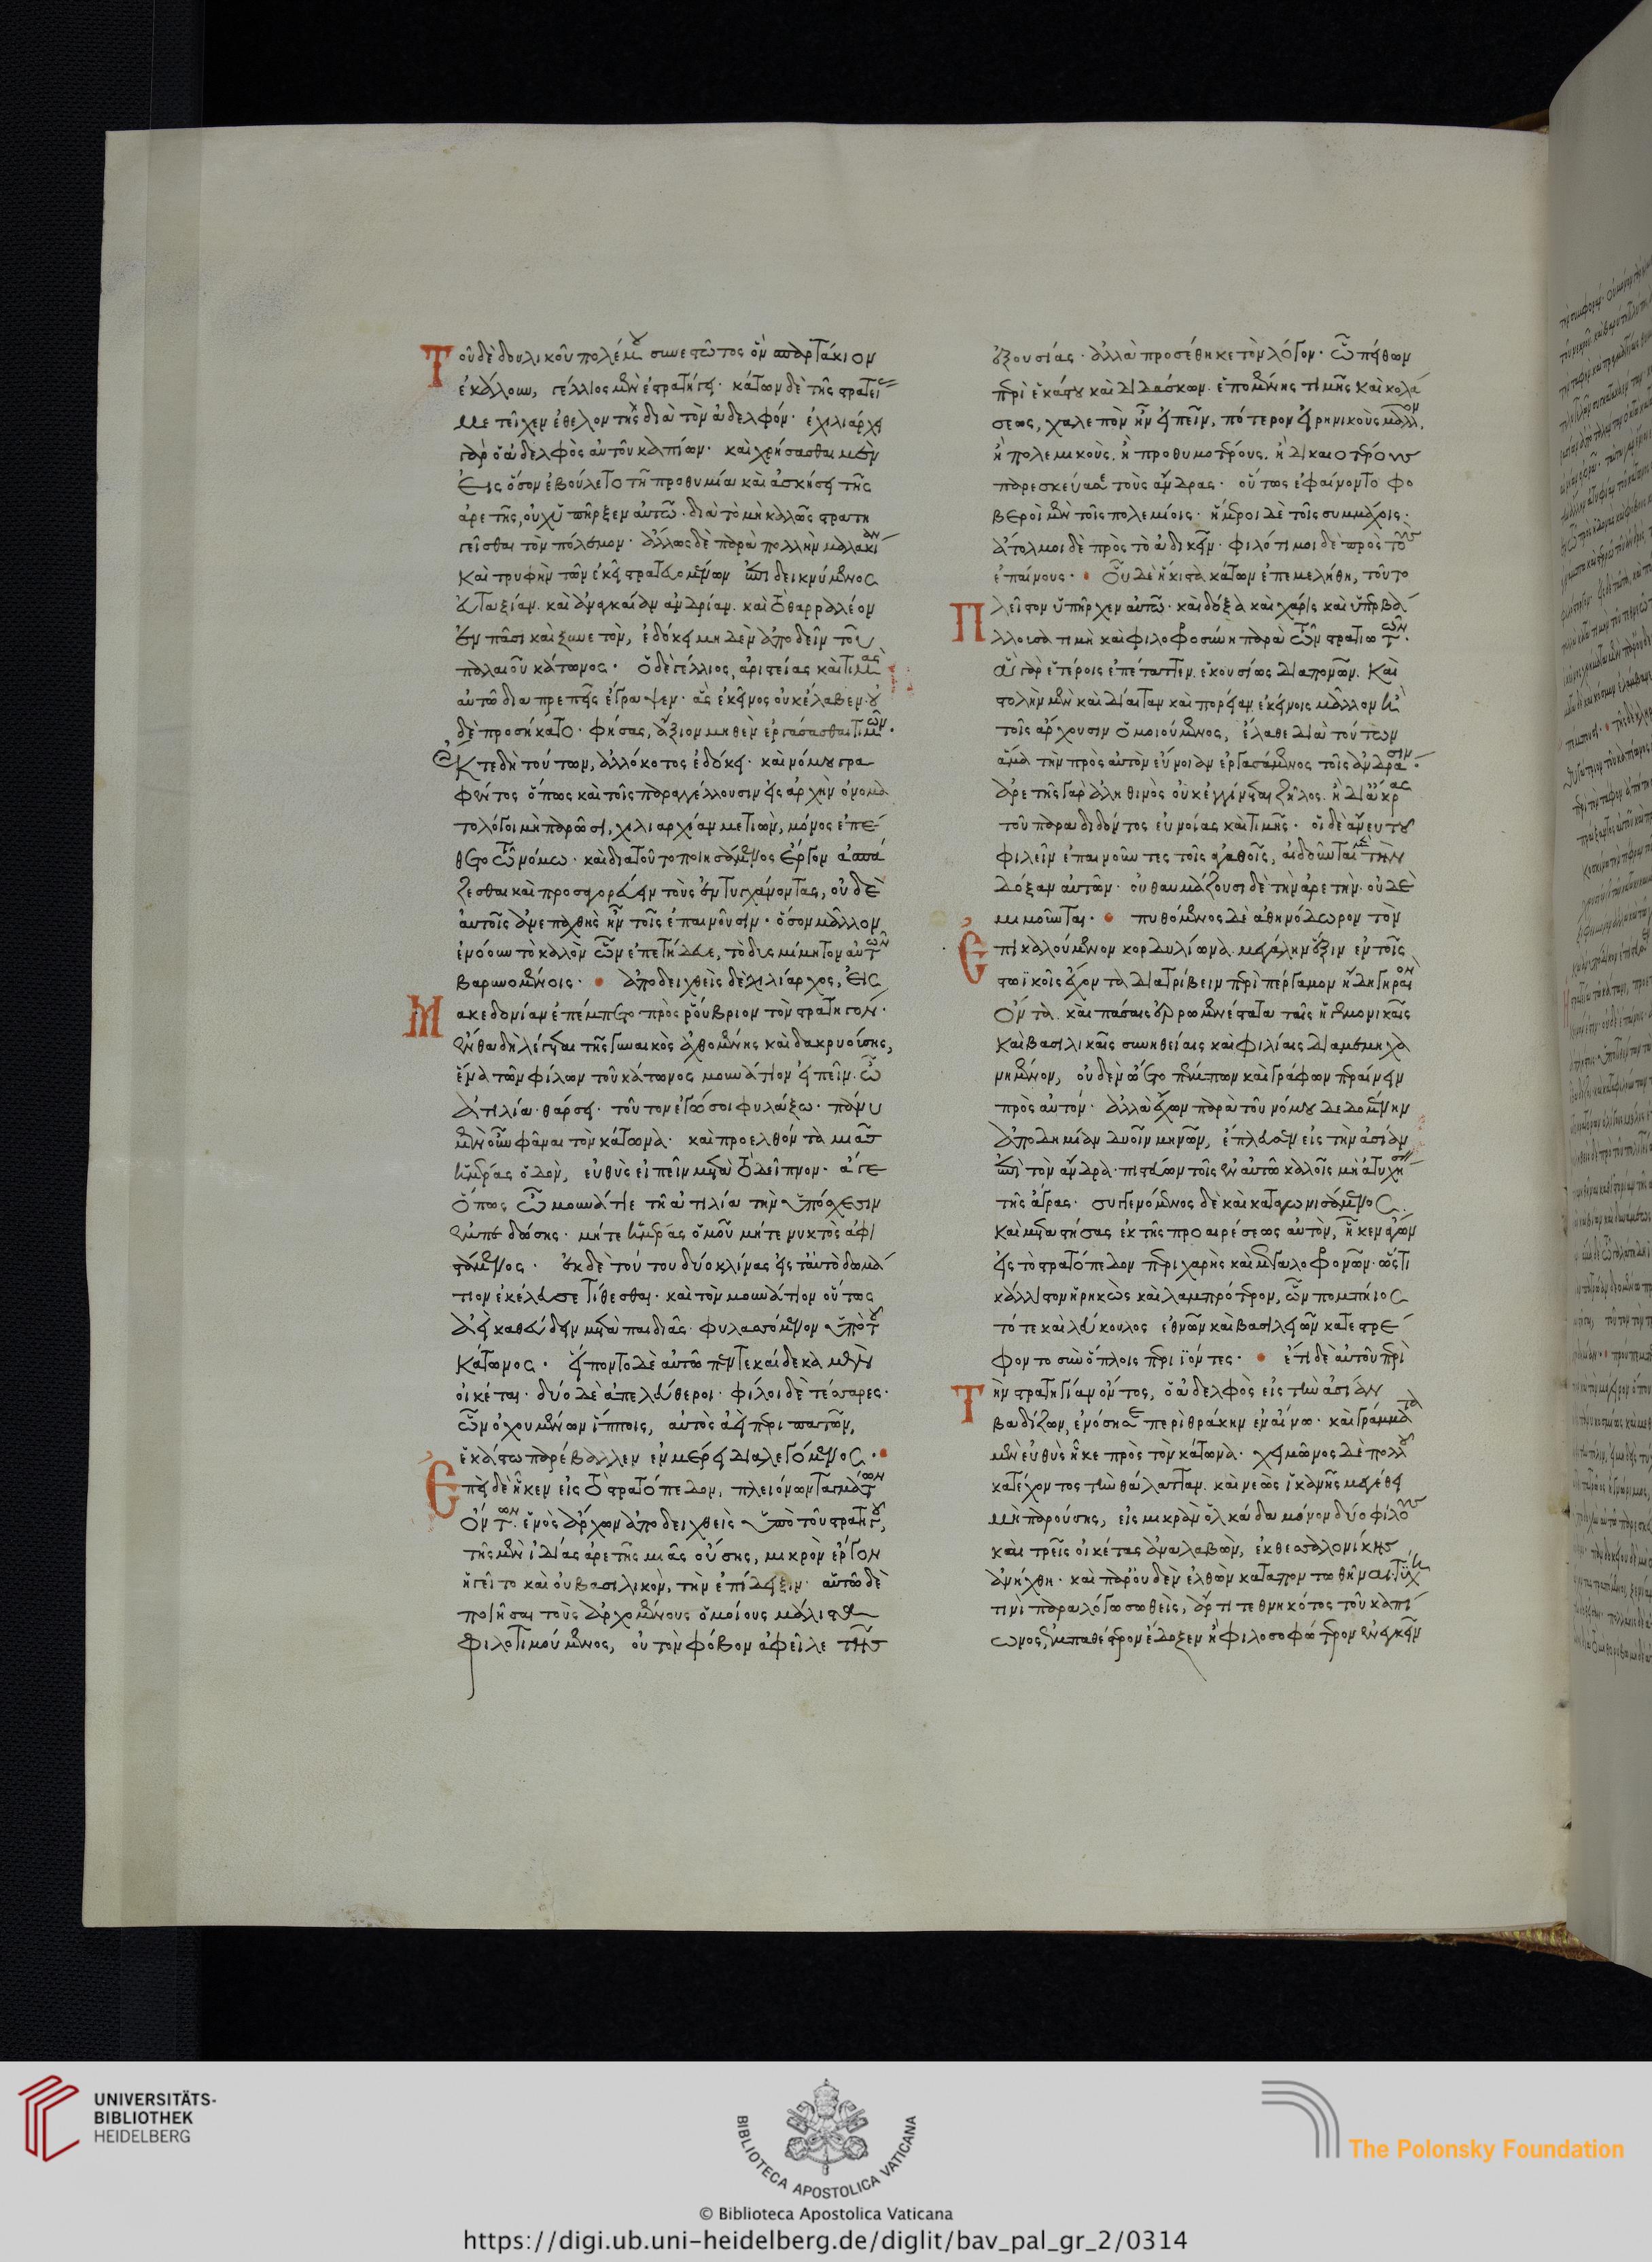 Τοῦ δὲ δουλικοῦ πολέμου συνεστῶτος ὃν σπαρτάκιον
ἐκάλουν, γέλλιος μὲν ἐστρατήγει· κάτων δὲ τῆς στρατείας
μετεῖχεν ἐθελοντὴς διὰ τὸν ἀδελφόν· ἐχιλιάρχει
γὰρ ὁ ἀδελφὸς αὐτοῦ καπίων· καὶ χρήσασθαι μὲν
εἰς ὅσον ἐβούλετο τῇ προθυμίαι καὶ ἀσκήσει τῆς
ἀρετῆς, οὐχ ὑπῆρξεν αὐτῶ· διὰ τὸ μὴ καλῶς στρατη
γεῖσθαι τὸν πόλεμον· ἄλλως δὲ παρὰ πολλὴν μαλακίαν
καὶ τρυφὴν τῶν ἐκεῖ στρατευομένων ἐπιδεικνύμενος
εὐταξίαν. καὶ ἀναγκαίαν ἀνδρίαν. καὶ τὸ θαρραλέον
ἐν πᾶσι καὶ ξυνετὸν, ἐδόκει μηδὲν ἀποδεῖν τοῦ
παλαιοῦ κάτωνος· ὁ δὲ γέλλιος, ἀριστείας καὶ τιμὰς
αὐτῶ διαπρεπεῖς ἔγραψεν· ἃς ἐκεῖνος οὐκ ἔλαβεν· οὐ
δὲ προσήκατο· φήσας, ἄξιον μηθὲν ἐργάσασθαι τιμῶν.
ἔκ τε δὴ τούτων, ἀλλόκοτος ἐδόκει· καὶ νόμου γρα
φέντος ὅπως καὶ τοῖς παραγγέλλουσιν εἰς ἀρχὴν ὀνομα
τολόγοι μὴ παρῶσι, χιλιαρχίαν μετιὼν, μόνος ἐπεί
θετο τῶ νόμω· καὶ διὰ τοῦτο ποιησάμενος ἔργον ἀσπά
ζεσθαι καὶ προσαγορεύειν τοὺς ἐντυγχάνοντας, οὐδὲ
αὐτοῖς ἀνεπαχθὴς ἦν τοῖς ἐπαινοῦσιν· ὅσον μᾶλλον
ἐνόουν τὸ καλὸν ὧν ἐπετήδευε, τὸ δυσμίμητον αὐτῶν
βαρυνομένοις· ἀποδειχθεὶς δὲ χιλίαρχος, εἰς
Μακεδονίαν ἐπέμπετο πρὸς ῥούβριον τὸν στρατηγόν·
ἔνθα δὴ λέγεται τῆς γυναικὸς ἀχθομένης καὶ δακρυούσης,
ἕνα τῶν φίλων τοῦ κάτωνος μουνάτιον εἰπεῖν. ὦ
ἀτιλία· θάρσει· τοῦτον ἐγώ σοι φυλάξω· πάνυ
μὲν οὖν φᾶναι τὸν κάτωνα· καὶ προελθόντα μιᾶς
ἡμέρας ὁδὸν, εὐθὺς εἰπεῖν μετὰ τὸ δεῖπνον· ἄγε
ὅπως ὦ μουνάτιε τῇ ἀτιλία τὴν ὑπόσχεσιν
ἐμπεδώσης· μήτε ἡμέρας ὁμοῦ μήτε νυκτὸς ἀφι
στάμενος· ἐκ δὲ τούτου δύο κλίνας εἰς ταὐτὸ δωμά
τιον ἐκέλευσε τίθεσθαι· καὶ τὸν μουνάτιον οὕτως
ἀεὶ καθεύδειν μετὰ παιδιᾶς· φυλασσόμενον ὑπὸ τοῦ
Κάτωνος· εἵποντο δὲ αὐτῶ πεντεκαίδεκα μὲν
οἰκέται· δύο δὲ ἀπελεύθεροι· φίλοι δὲ τέσσαρες·
ὧν ὀχουμένων ἵπποις, αὐτὸς ἀεὶ περιπατῶν,
ἑκάστω παρέβαλλεν ἐν μέρει διαλεγόμενος·
Ἐπεὶ δὲ ἧκεν εἰς τὸ στρατόπεδον, πλειόνων ταγμάτων
ὄντων. ἑνὸς ἄρχων ἀποδειχθεὶς ὑπὸ τοῦ στρατηγοῦ,
τῆς μὲν ἰδίας ἀρετῆς μιᾶς οὔσης, μικρὸν ἔργον
ἡγεῖτο καὶ οὐ βασιλικὸν, τὴν ἐπίδειξιν· αὑτῶ δὲ
ποιῆσαι τοὺς ἀρχομένους ὁμοίους μάλιστα
φιλοτιμούμενος, οὐ τὸν φόβον ἀφεῖλε τῆς
ἐξουσίας· ἀλλὰ προσέθηκε τὸν λόγον· ὧ πείθων
περὶ ἑκάστου καὶ διδάσκων. ἑπομένης τιμῆς καὶ κολά
σεως, χαλεπὸν ἦν εἰπεῖν, πότερον εἰρηνικοὺς μᾶλλον
ἢ πολεμικοὺς. ἢ προθυμοτέρους. ἢ δικαιοτέρους
παρεσκεύασε τοὺς ἄνδρας· οὕτως ἐφαίνοντο φο
βεροὶ μὲν τοῖς πολεμίοις· ἥμεροι δὲ τοῖς συμμάχοις·
ἄτολμοι δὲ πρὸς τὸ ἀδικεῖν· φιλότιμοι δὲ πρὸς τοὺς
ἐπαίνους· οὗ δὲ ἥκιστα κάτων ἐπεμελήθη, τοῦτο
Πλεῖστον ὑπῆρχεν αὐτῶ· καὶ δόξα καὶ χάρις καὶ ὑπερβά
λλουσα τιμὴ καὶ φιλοφροσύνη παρὰ τῶν στρατιωτῶν·
ἃ γὰρ ἑτέροις ἐπέταττεν. ἑκουσίως διαπονῶν. καὶ
στολὴν μὲν καὶ δίαιταν καὶ πορείαν ἐκείνοις μᾶλλον ἢ
τοῖς ἄρχουσιν ὁμοιούμενος, ἔλαθε διὰ τούτων
ἅμα τὴν πρὸς αὐτὸν εὔνοιαν ἐργασάμενος τοῖς ἀνδράσιν·
ἀρετῆς γὰρ ἀληθινὸς οὐκ ἐγγίνεται ζῆλος. ἢ δι' ἄκρας
τοῦ παραδιδόντος εὐνοίας καὶ τιμῆς· οἱ δὲ ἄνευ τοῦ
φιλεῖν ἐπαινοῦντες τοὺς ἀγαθοὺς, αἰδοῦνται μὲν τὴν
δόξαν αὐτῶν· οὐ θαυμάζουσι δὲ τὴν ἀρετὴν· οὐδὲ
μιμοῦνται· πυθόμενος δὲ ἀθηνόδωρον τὸν
Ἐπικαλούμενον κορδυλίωνα. μεγάλην ἕξιν ἐν τοῖς
στωϊκοῖς ἔχοντα διατρίβειν περὶ πέργαμον ἤδη γηραιὸν
ὄντα. καὶ πάσαις ἐρρωμενέστατα ταῖς ἡγεμονικαῖς
καὶ βασιλικαῖς συνηθείαις καὶ φιλίαις διαμεμαχη
μένον, οὐδὲν ὤετο πέμπων καὶ γράφων περαίνειν
πρὸς αὐτόν· ἀλλὰ ἔχων παρὰ τοῦ νόμου δεδομένην
ἀποδημίαν δυοῖν μηνῶν, ἔπλευσεν εἰς τὴν ἀσίαν
ἐπὶ τὸν ἄνδρα· πιστεύων τοῖς ἐν αὐτῶ καλοῖς μὴ ἀτυχήσειν
τῆς ἄγρας· συγγενόμενος δὲ καὶ καταγωνισάμενος.
καὶ μεταστήσας ἐκ τῆς προαιρέσεως αὐτὸν, ἧκεν ἄγων
εἰς τὸ στρατόπεδον περιχαρὴς καὶ μεγαλοφρονῶν. ὥς τι
κάλλιστον ἡρηκὼς καὶ λαμπρότερον, ὧν πομπήιος
τότε καὶ λεύκουλος ἐθνῶν καὶ βασιλειῶν κατεστρέ
φοντο σὺν ὅπλοις περιϊόντες· ἔτι δὲ αὐτοῦ περὶ
Τὴν στρατηγίαν ὄντος, ὁ ἀδελφὸς εἰς τὴν ἀσίαν
βαδίζων, ἐνόσησε περὶ θράκην ἐν αἴνω· καὶ γράμματα
μὲν εὐθὺς ἧκε πρὸς τὸν κάτωνα· χειμῶνος δὲ πολλοῦ
κατέχοντος τὴν θάλατταν. καὶ νεὼς ἱκανῆς μεγέθει
μὴ παρούσης, εἰς μικρὰν ὁλκάδα μόνον δύο φίλους
καὶ τρεῖς οἰκέτας ἀναλαβὼν, ἐκ θεσσαλονίκης
ἀνήχθη· καὶ παρ' οὐδὲν ἐλθὼν καταποντωθῆναι. τύχη
τινὶ παραλόγω σωθεὶς, ἄρτι τεθνηκότος τοῦ καπί
ωνος, ἐμπαθέστερον ἔδοξεν ἢ φιλοσοφώτερον ἐνεγκεῖν
UNIVERSITÄTS-
BIBLIOTHEK
HEIDELBERG
BIBLIOTECA APOSTOLICA VATICANA
The Polonsky Foundation
© Biblioteca Apostolica Vaticana
https://digi.ub.uni-heidelberg.de/diglit/bav_pal_gr_2/0314